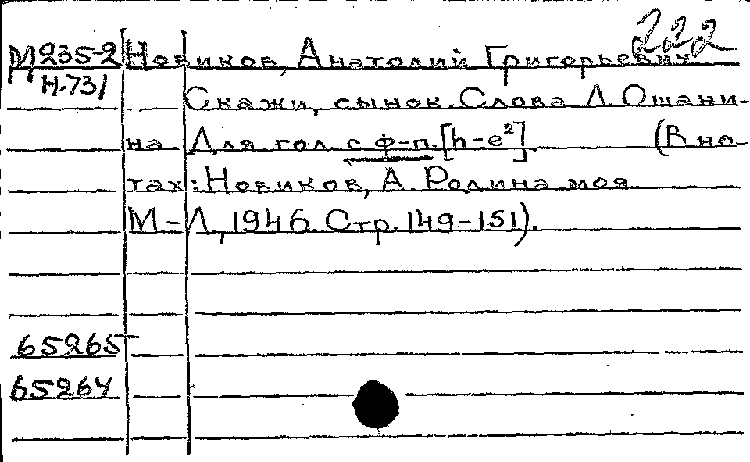 222
М235-2 Новиков, Анатолий Григорьевич
Н-731
Скажи, сынок. Слова Л. Ошани-
на Для гол. с ф-п. [h-e²] (В но-
тах: Новиков, А. Родина моя
М-Л, 1946. Стр. 149-151).
65265
65264